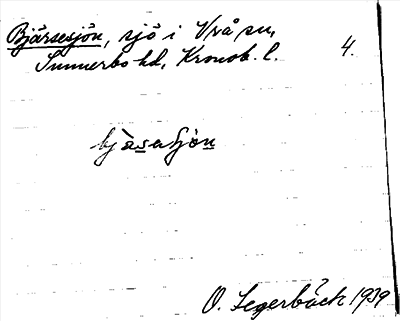 Bjärsesjön, sjö i Vrå sn,
Sunnerbo hd, Kronob. l. 4.
bjàsaʃjön
O. Segerbäck 1939